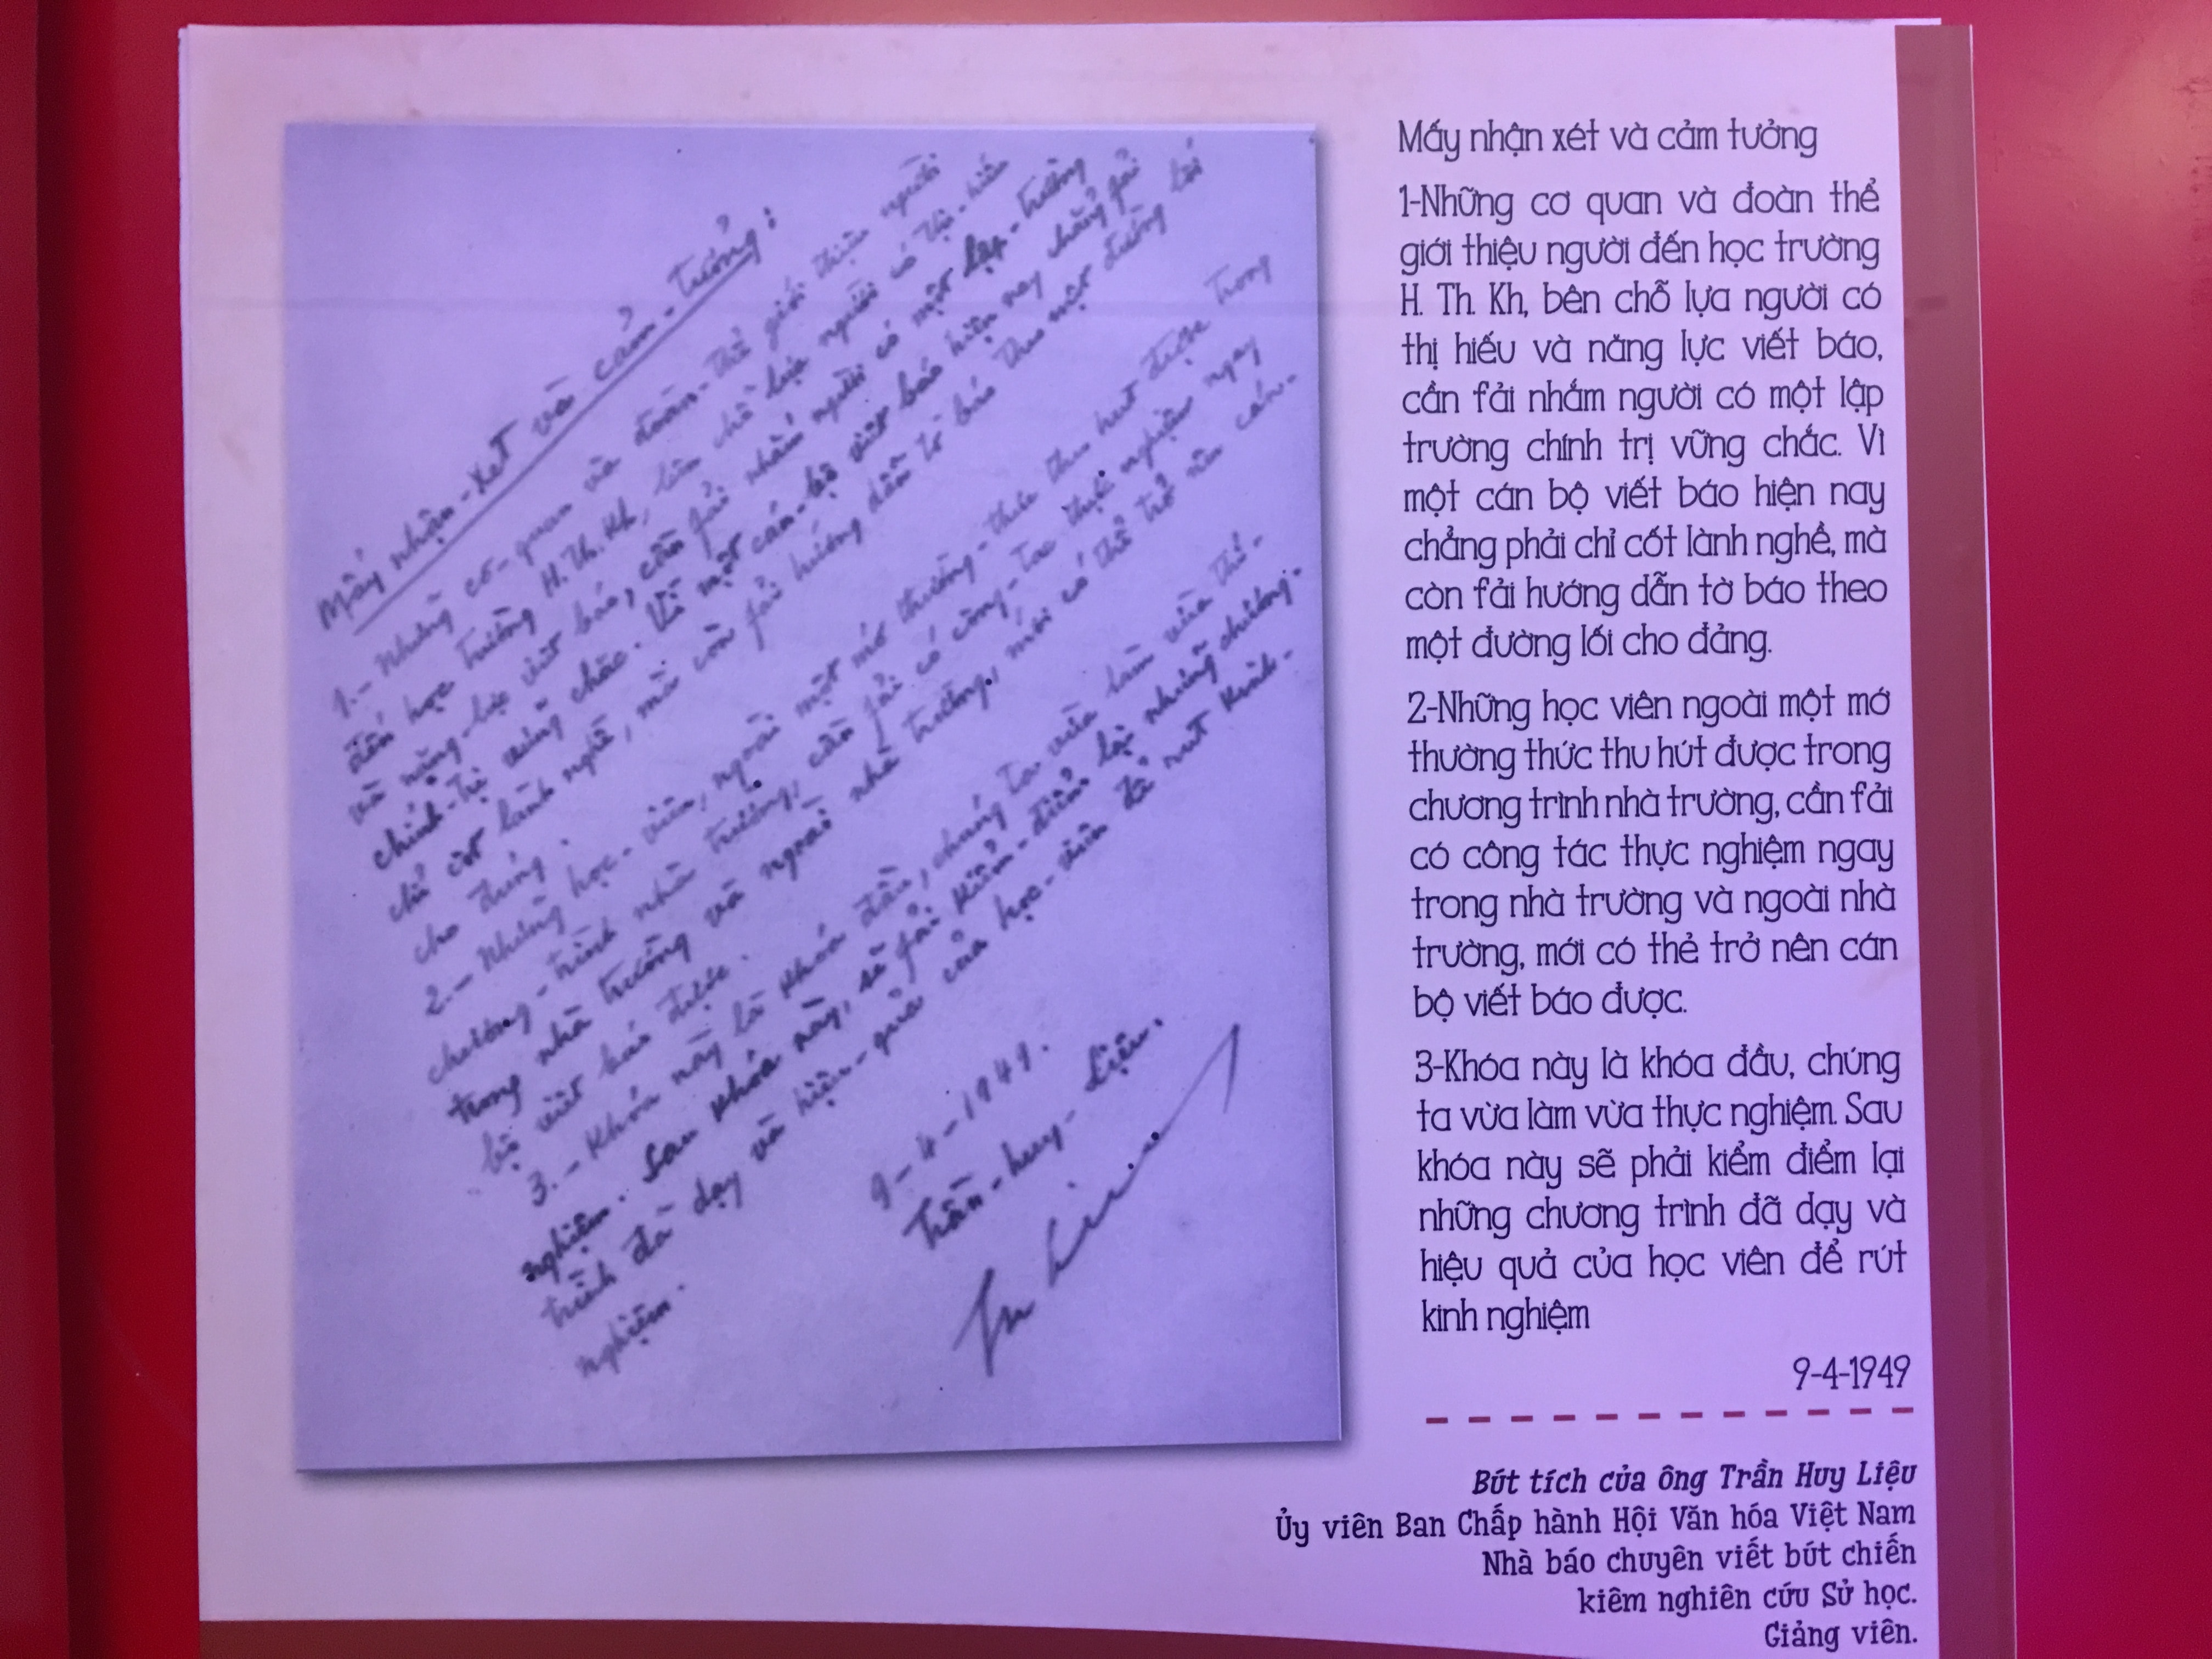 Mấy nhận-xét và cảm-tưởng:
1.- Những cơ-quan và đoàn-thể giới thiệu người
đến học trường H.Th.Kh, bên chỗ lựa người có thị-hiếu
và năng-lực viết báo, cần fải nhắm người có một lập-trường
chính-trị vững chắc. Vì một cán-bộ viết báo hiện nay chẳng fải
chỉ cốt lành nghề, mà còn fải hướng dẫn tờ báo theo một đường lối
cho đúng.
2.- Những học-viên, ngoài một mớ thường-thức thu hút được trong
chương-trình nhà trường, cần fải có công-tác thực nghiệm ngay
trong nhà trường và ngoài nhà trường, mới có thể trở nên cán-
bộ viết báo được.
3.- Khóa này là khóa đầu, chúng ta vừa làm vừa thí-
nghiệm. Sau khóa này, sẽ fải kiểm-điểm lại những chương-
trình đã dạy và hiệu-quả của học-viên để rút kinh-
nghiệm.
9-4-1949.
Trần-huy-Liệu.
Mấy nhận xét và cảm tưởng
1-Những cơ quan và đoàn thể
giới thiệu người đến học trường
H. Th. Kh, bên chỗ lựa người có
thị hiếu và năng lực viết báo,
cần fải nhắm người có một lập
trường chính trị vững chắc. Vì
một cán bộ viết báo hiện nay
chẳng phải chỉ cốt lành nghề, mà
còn fải hướng dẫn tờ báo theo
một đường lối cho đảng.
2-Những học viên ngoài một mớ
thường thức thu hút được trong
chương trình nhà trường, cần fải
có công tác thực nghiệm ngay
trong nhà trường và ngoài nhà
trường, mới có thẻ trở nên cán
bộ viết báo được.
3-Khóa này là khóa đầu, chúng
ta vừa làm vừa thực nghiệm. Sau
khóa này sẽ phải kiểm điểm lại
những chương trình đã dạy và
hiệu quả của học viên để rút
kinh nghiệm
9-4-1949
Bút tích của ông Trần Huy Liệu
Ủy viên Ban Chấp hành Hội Văn hóa Việt Nam
Nhà báo chuyên viết bút chiến
kiêm nghiên cứu Sử học.
Giảng viên.